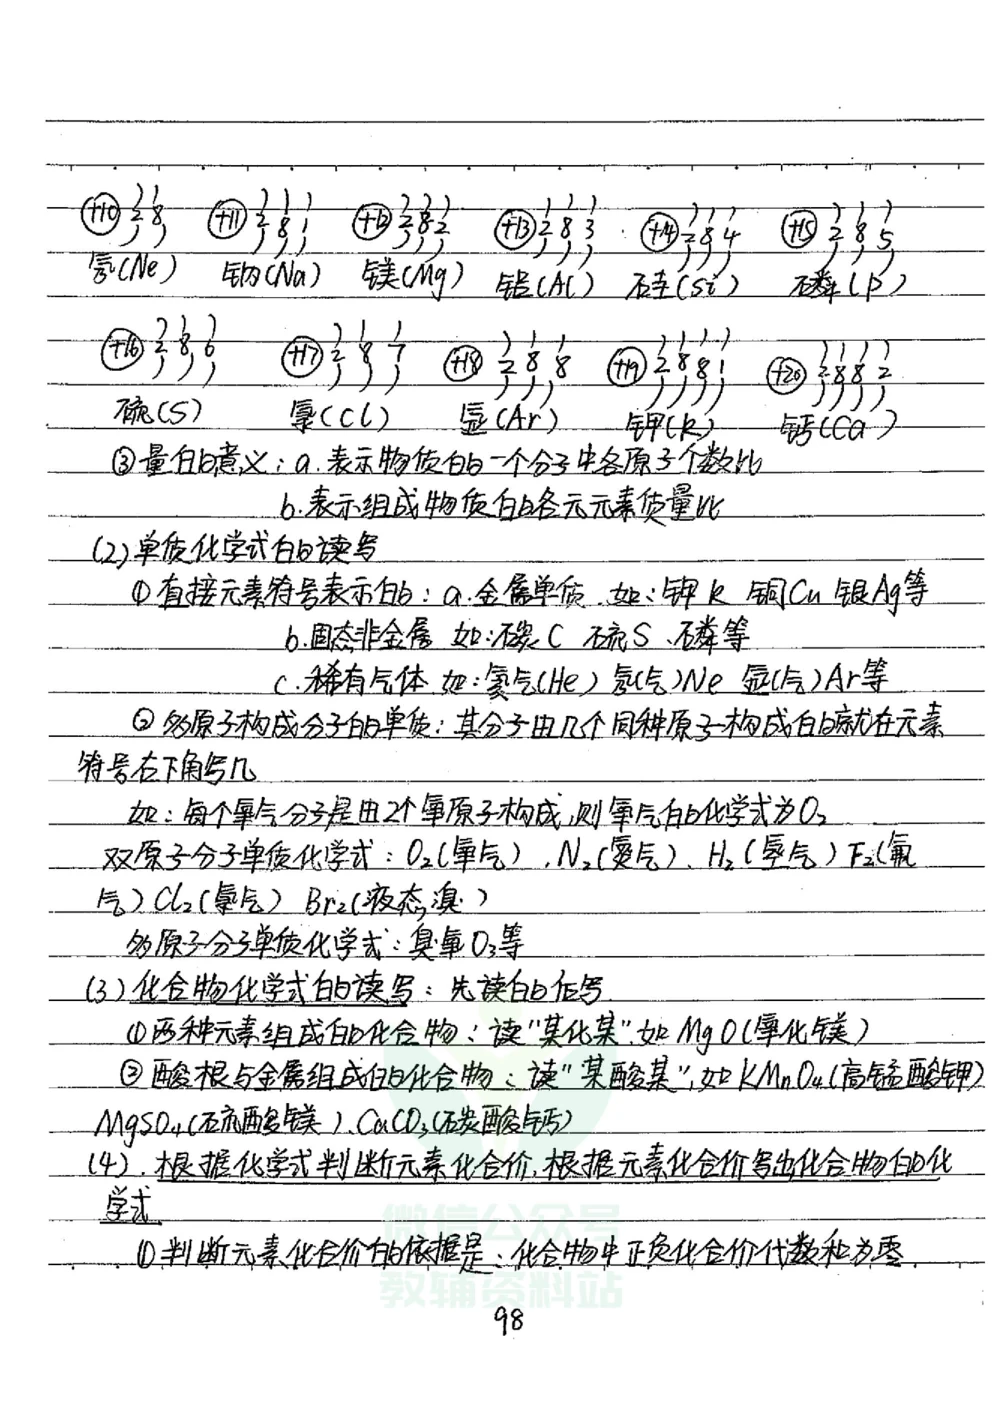 +10 2 8 +11 2 8 1 +12 2 8 2 +13 2 8 3 +14 2 8 4 +15 2 8 5
氖(Ne) 钠(Na) 镁(Mg) 铝(Al) 硅(Si) 磷(P)
+16 2 8 6 +17 2 8 7 +18 2 8 8 +19 2 8 8 1 +20 2 8 8 2
硫(S) 氯(Cl) 氩(Ar) 钾(K) 钙(Ca)
③量的意义:a.表示物质的一个分子中各原子个数比
b.表示组成物质的各元元素质量比
(2)单质化学式的读写
①直接元素符号表示的:a.金属单质.如:钾K 铜Cu 银Ag等
b.固态非金属 如:碳C 硫S、磷等
c.稀有气体 如:氦气(He)氖(气)Ne 氩(气)Ar等
②多原子构成分子的单质:其分子由几个同种原子构成的就在元素
符号右下角写几
如:每个氧气分子是由2个氧原子构成,则氧气的化学式为O₂
双原子分子单质化学式:O₂(氧气)、N₂(氮气)、H₂(氢气)F₂(氟
气)Cl₂(氯气) Br₂(液态,溴)
多原子分子单质化学式:臭氧O₃等
(3)化合物化学式的读写:先读的后写
①两种元素组成的化合物:读"某化某",如MgO(氧化镁)
②酸根与金属组成的化合物:读"某酸某",如KMnO₄(高锰酸钾)
MgSO₄(硫酸镁)、CaCO₃(碳酸钙)
(4).根据化学式判断元素化合价,根据元素化合价写出化合物的化
学式
①判断元素化合价的依据是:化合物中正负化合价代数和为零
微信公众号
教辅资料站
98